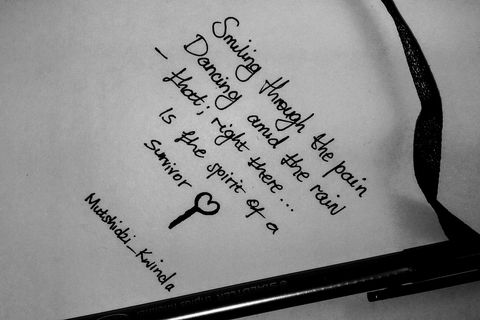 Smiling through the pain
Dancing amid the rain
- that; right there...
Is the spirit of a
survivor
Mutshidzi_Kwinda